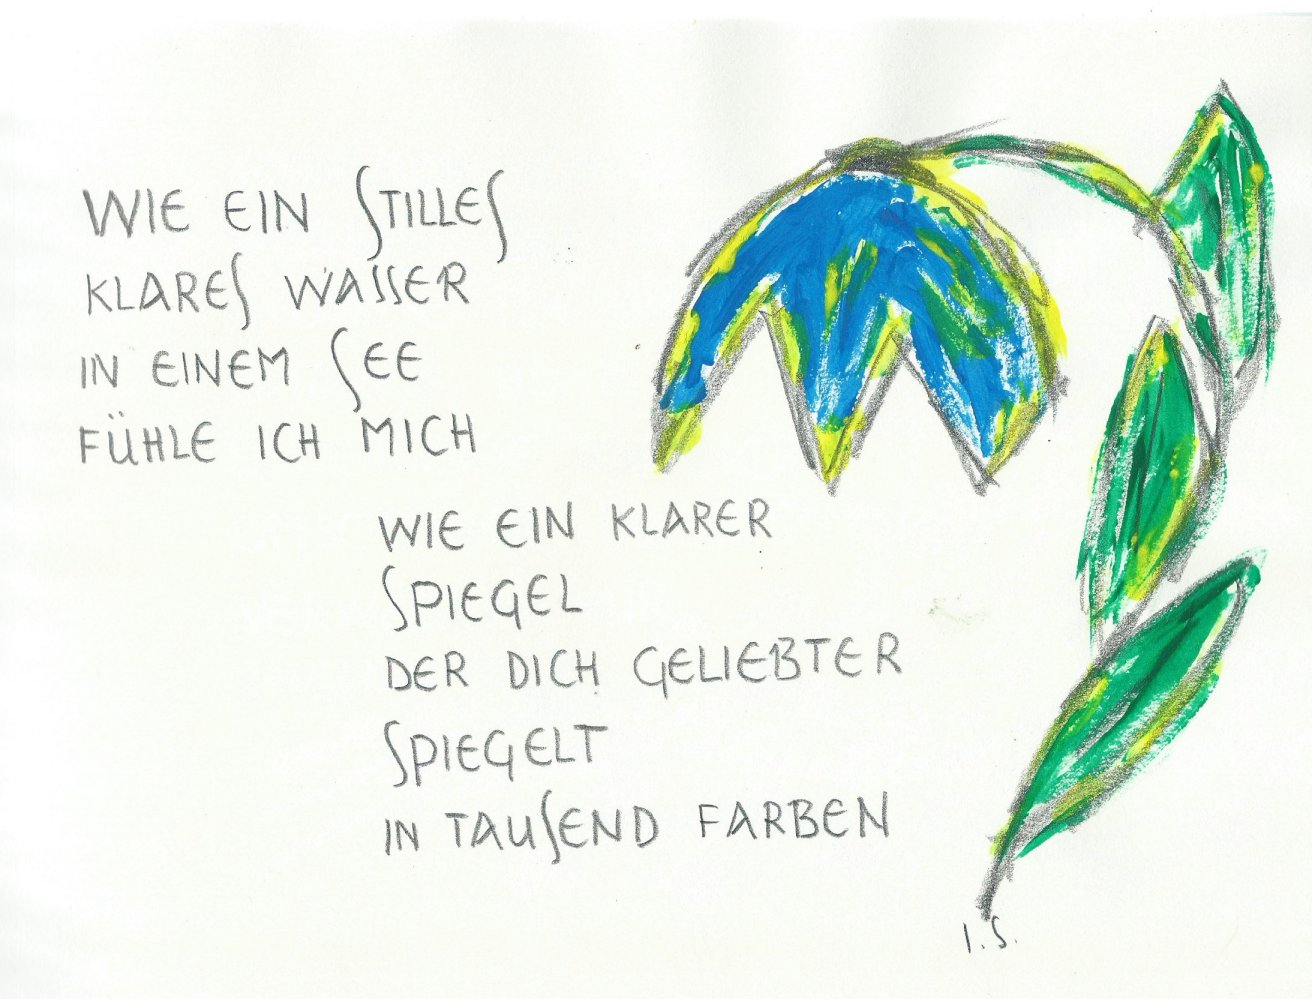 WIE EIN STILLES
KLARES WASSER
IN EINEM SEE
FÜHLE ICH MICH
WIE EIN KLARER
SPIEGEL
DER DICH GELIEBTER
SPIEGELT
IN TAUSEND FARBEN
I.S.